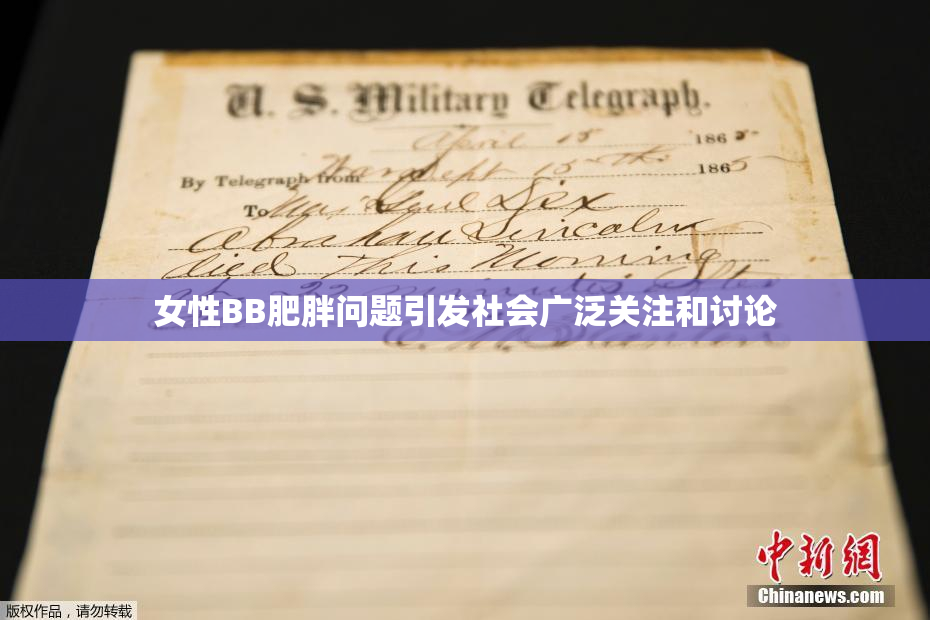 U. S. Military Telegraph.
April 15 1865
By Telegraph from War Dept 15th 1865
To Maj Genl Dix
Abraham Lincoln
died This Morning
at 22 minutes after
女性BB肥胖问题引发社会广泛关注和讨论
E. M. Stanton
中新网
Chinanews.com
版权作品，请勿转载